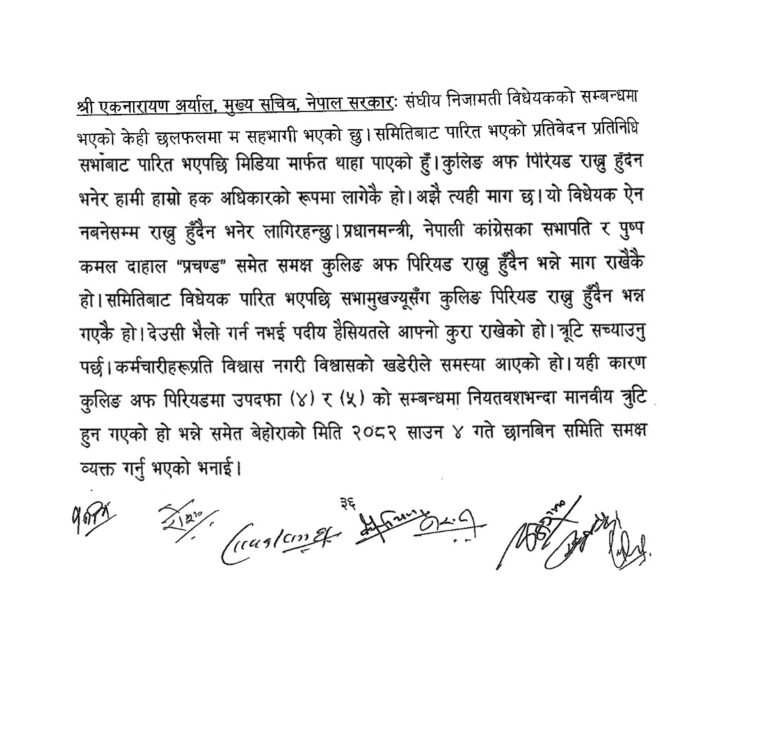 श्री एकनारायण अर्याल, मुख्य सचिव, नेपाल सरकारः संघीय निजामती विधेयकको सम्बन्धमा
भएको केही छलफलमा म सहभागी भएको छु। समितिबाट पारित भएको प्रतिवेदन प्रतिनिधि
सभाबाट पारित भएपछि मिडिया मार्फत थाहा पाएको हुँ। कुलिङ अफ पिरियड राख्नु हुँदैन
भनेर हामी हाम्रो हक अधिकारको रूपमा लागेकै हो। अझै त्यही माग छ। यो विधेयक ऐन
नबनेसम्म राख्नु हुँदैन भनेर लागिरहन्छु। प्रधानमन्त्री, नेपाली कांग्रेसका सभापति र पुष्प
कमल दाहाल "प्रचण्ड" समेत समक्ष कुलिङ अफ पिरियड राख्नु हुँदैन भन्ने माग राखेकै
हो। समितिबाट विधेयक पारित भएपछि सभामुखज्यूसँग कुलिङ पिरियड राख्नु हुँदैन भन्न
गएकै हो। देउसी भैलो गर्न नभई पदीय हैसियतले आफ्नो कुरा राखेको हो। त्रूटि सच्याउनु
पर्छ। कर्मचारीहरूप्रति विश्वास नगरी विश्वासको खडेरीले समस्या आएको हो। यही कारण
कुलिङ अफ पिरियडमा उपदफा (४) र (५) को सम्बन्धमा नियतवशभन्दा मानवीय त्रुटि
हुन गएको हो भन्ने समेत बेहोराको मिति २०८२ साउन ४ गते छानबिन समिति समक्ष
व्यक्त गर्नु भएको भनाई।
३६